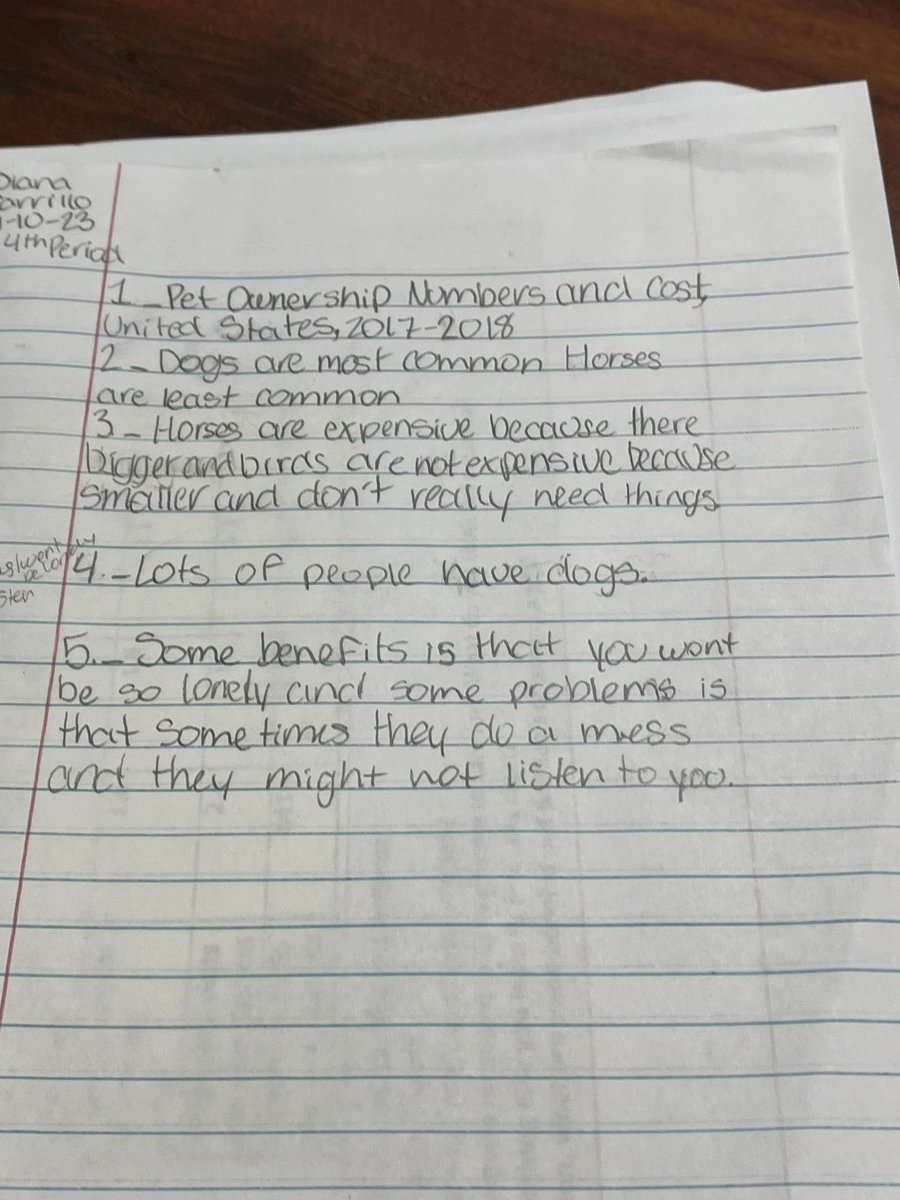 Diana
arrillo
-10-23
4th Period
1_Pet Ownership Numbers and cost,
United States, 2017-2018
2_ Dogs are most common Horses
are least common
3_ Horses are expensive because there
bigger and birds are not expensive because
smaller and don't really need things
4._Lots of people have dogs.
5._ Some benefits is that you wont
be so lonely and some problems is
that sometimes they do a mess
and they might not listen to you.